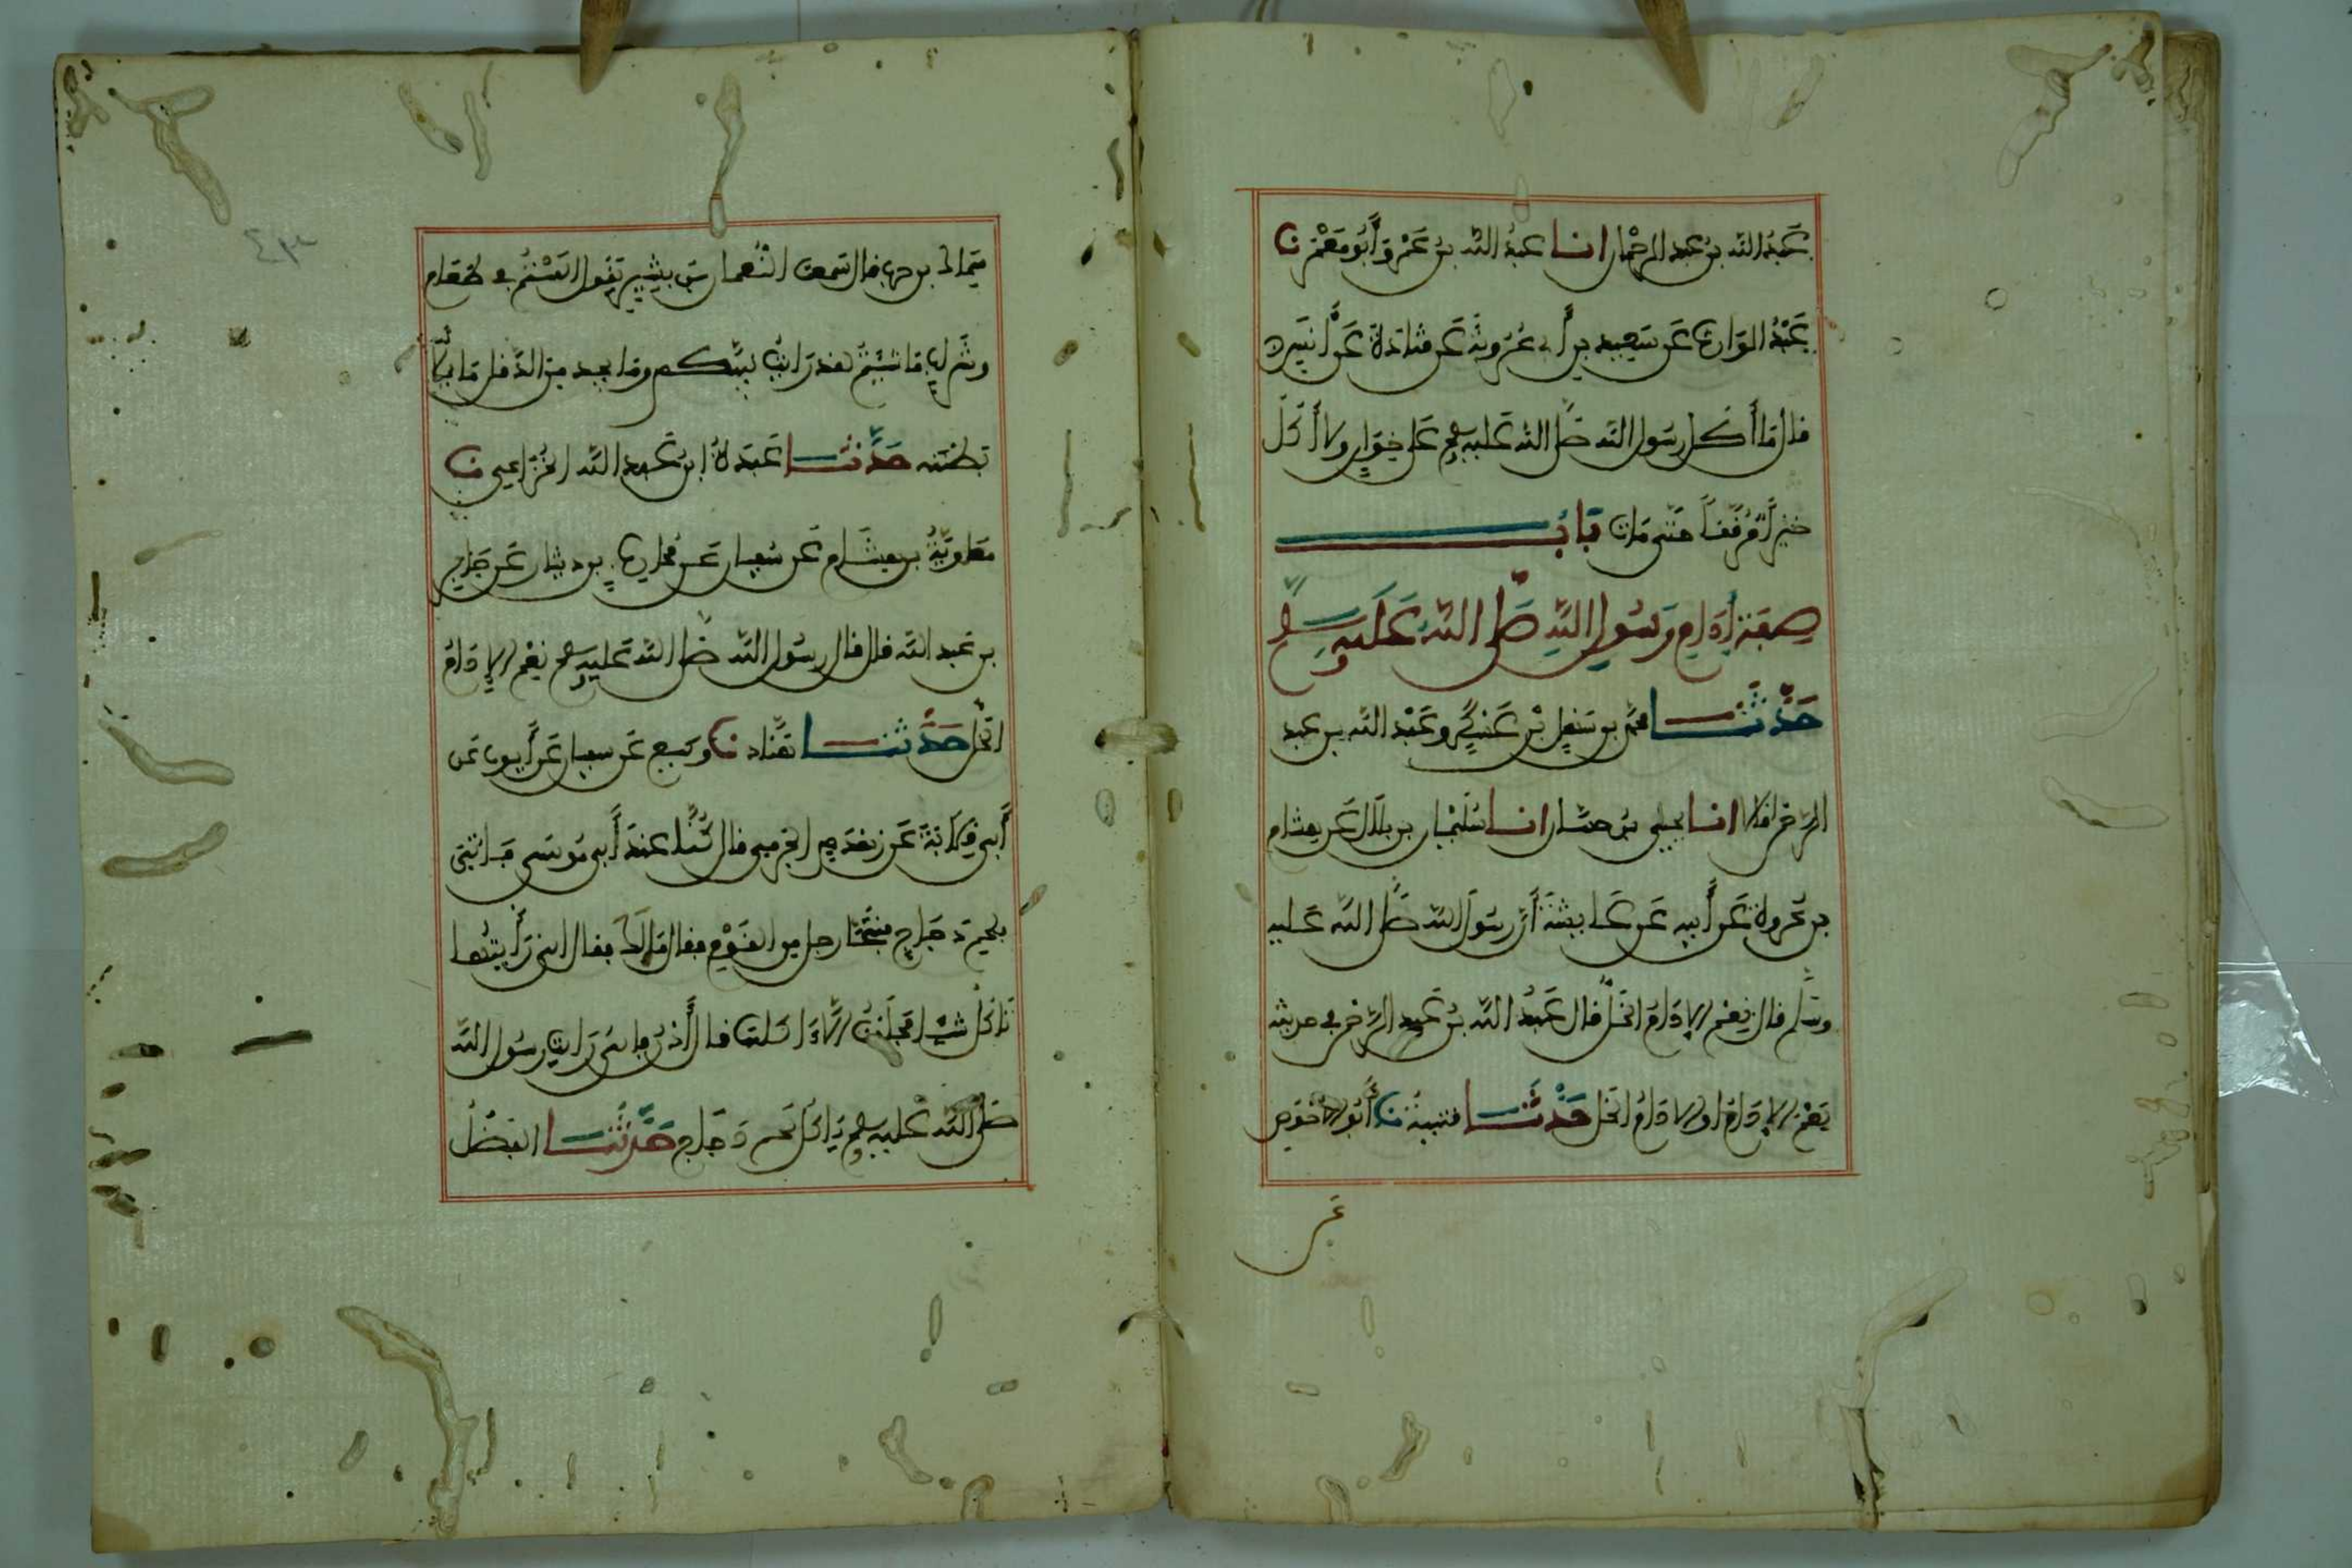 عَبْدُ الله بن عبد الرحمان انا عبدُ الله بن عَمْرٍو أَبُو مَعْمَرٍ نا
عَبْدُ الوَارِث عَن سَعِيد بنِ أبي عَرُوبَة عَن قتادَة عَن أنَسٍ
قال مَا أَكل رسُول الله صَلى الله عَليه وسلم عَلى خِوَانٍ ولا أَكَلَ
خبْزاً مُرَقَّقاً حَتى مَات بَابُ
صِفَة إِدَامِ رَسُولِ اللهِ صَلى الله عَلَيْهِ وسلم
حَدَّثَنَا محمد بن سَهْلِ بْنِ عَسْكَرٍ وعَبْد الله بن عبد
الرحمن قالا انا يحيى بن حسَّان انا سُلَيْمان بن بلَال عَن هشام
بن عُروة عَن أبيه عَن عَايشَة أَن رسُولَ الله صَلى الله عَليه
وسَلم قال نِعْمَ الإدَامُ الخَلُّ قال عَبْدُ الله بنُ عَبد الرحمن في حديثه
نِعْمَ الإدَامُ أو الادَامُ الخل حَدَّثَنَا قتيبَةُ نا أبُو الأَحْوَص
عَن
سِمَاك بن حرب قال سَمعت النُّعمان بن بشِيرٍ يَقول ألَسْتُمْ في طعَام
وشَرابٍ مَا شِئتُمْ لقد رَأيتُ نبيَّكم وما يجِد مِن الدَّقل مَا يَمْلأُ
بَطنَه حَدَّثَنَا عَبدَة ابن عَبد الله الخُزَاعِي نا
مُعَاوِيَةُ بن هشَام عَن سُفيان عَن مُحَارِب بن دِثَار عَن جَابِر
بن عَبد الله قال قال رسُول الله صَلى الله عَليه وسلم نِعْمَ الإدَامُ
الخَل حَدَّثنا هَنَّاد نا وكيع عَن سفيان عَن أيوب عَن
أَبي قِلَابَة عَن زهْدَمٍ الجَرمي قال كُنَّا عندَ أَبي مُوسَى فَأُتِيَ
بلحم دَجَاجٍ فتَنَحَّى رجل من القَوْمِ فقال مَا لَكَ فقال إني رَأَيتُها
تَأكل شيئا فحَلَفْتُ ألَّا آكلها قال أدْنُ فإني رَأيت رسُول الله
صَلى الله عَليه وسلم يَأكُل لحم دَجَاج حَدَّثنَا الفَضْلُ